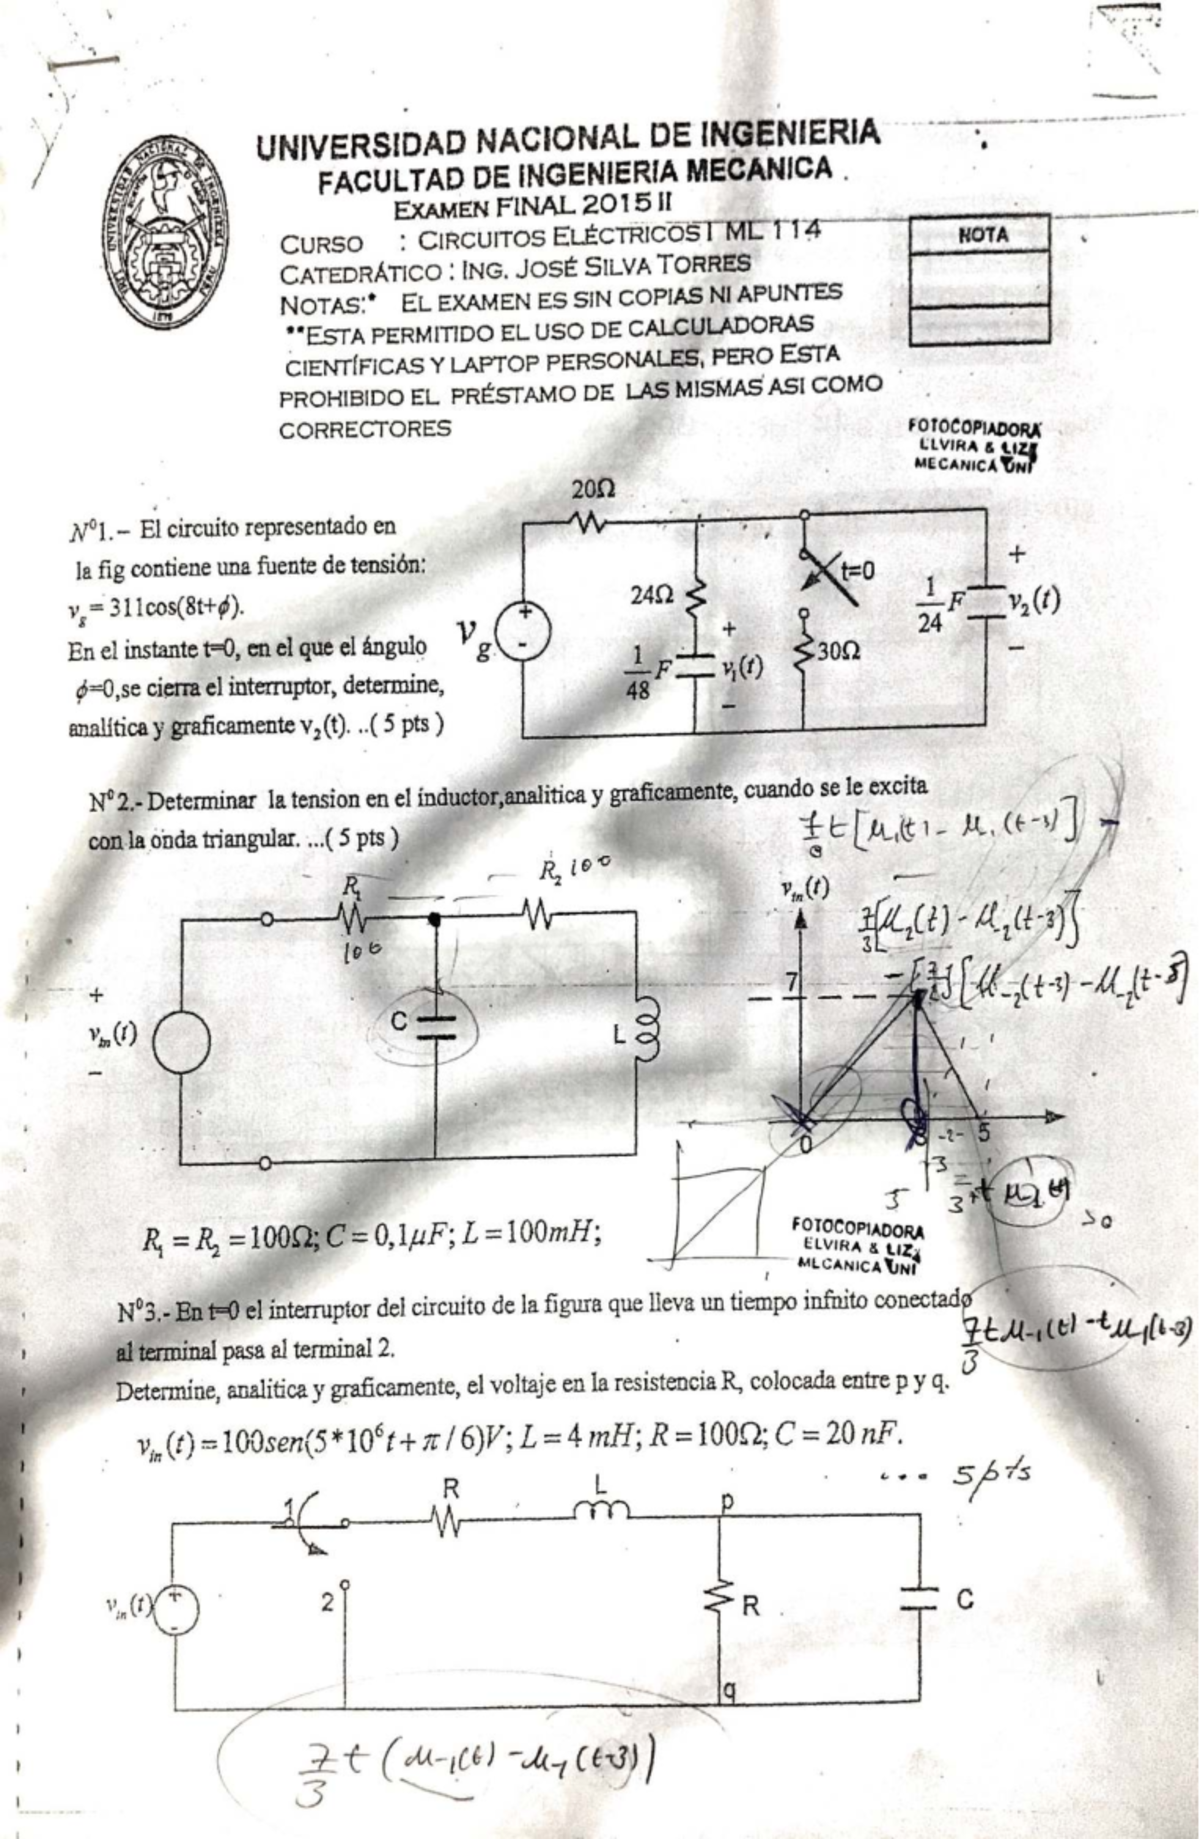 UNIVERSIDAD NACIONAL DE INGENIERIA
FACULTAD DE INGENIERIA MECANICA
EXAMEN FINAL 2015 II
CURSO : CIRCUITOS ELÉCTRICOS I ML 114
CATEDRÁTICO : ING. JOSÉ SILVA TORRES
NOTAS:* EL EXAMEN ES SIN COPIAS NI APUNTES
**ESTA PERMITIDO EL USO DE CALCULADORAS
CIENTÍFICAS Y LAPTOP PERSONALES, PERO ESTA
PROHIBIDO EL PRÉSTAMO DE LAS MISMAS ASI COMO
CORRECTORES
NOTA
FOTOCOPIADORA
ELVIRA & LIZ
MECANICA UNI
N°1.- El circuito representado en
la fig contiene una fuente de tensión:
v_g = 311cos(8t+ϕ).
En el instante t=0, en el que el ángulo
ϕ=0,se cierra el interruptor, determine,
analítica y graficamente v₂(t). ..( 5 pts )
20Ω
24Ω
t=0
v_g
+
-
1/48 F
+
v₁(t)
−
30Ω
1/24 F
+
v₂(t)
−
N°2.- Determinar la tension en el inductor,analitica y graficamente, cuando se le excita
con la onda triangular. ...( 5 pts )
R₁
100
R₂ 100
+
v_in(t)
−
C
L
v_in(t)
7
0
-2-
5
3
R₁ = R₂ = 100Ω; C = 0,1μF; L = 100mH;
FOTOCOPIADORA
ELVIRA & LIZ
MECANICA UNI
N°3.- En t=0 el interruptor del circuito de la figura que lleva un tiempo infnito conectado
al terminal pasa al terminal 2.
7/3 t μ₋₁(t) - t μ₁(t-3)
Determine, analitica y graficamente, el voltaje en la resistencia R, colocada entre p y q.
v_in(t) = 100sen(5*10⁶t + π / 6)V; L = 4 mH; R = 100Ω; C = 20 nF.
... 5pts
1
R
L
p
v_in(t)
+
-
2
R
C
q
7/3 t (μ₋₁(t) - μ₋₁(t-3))